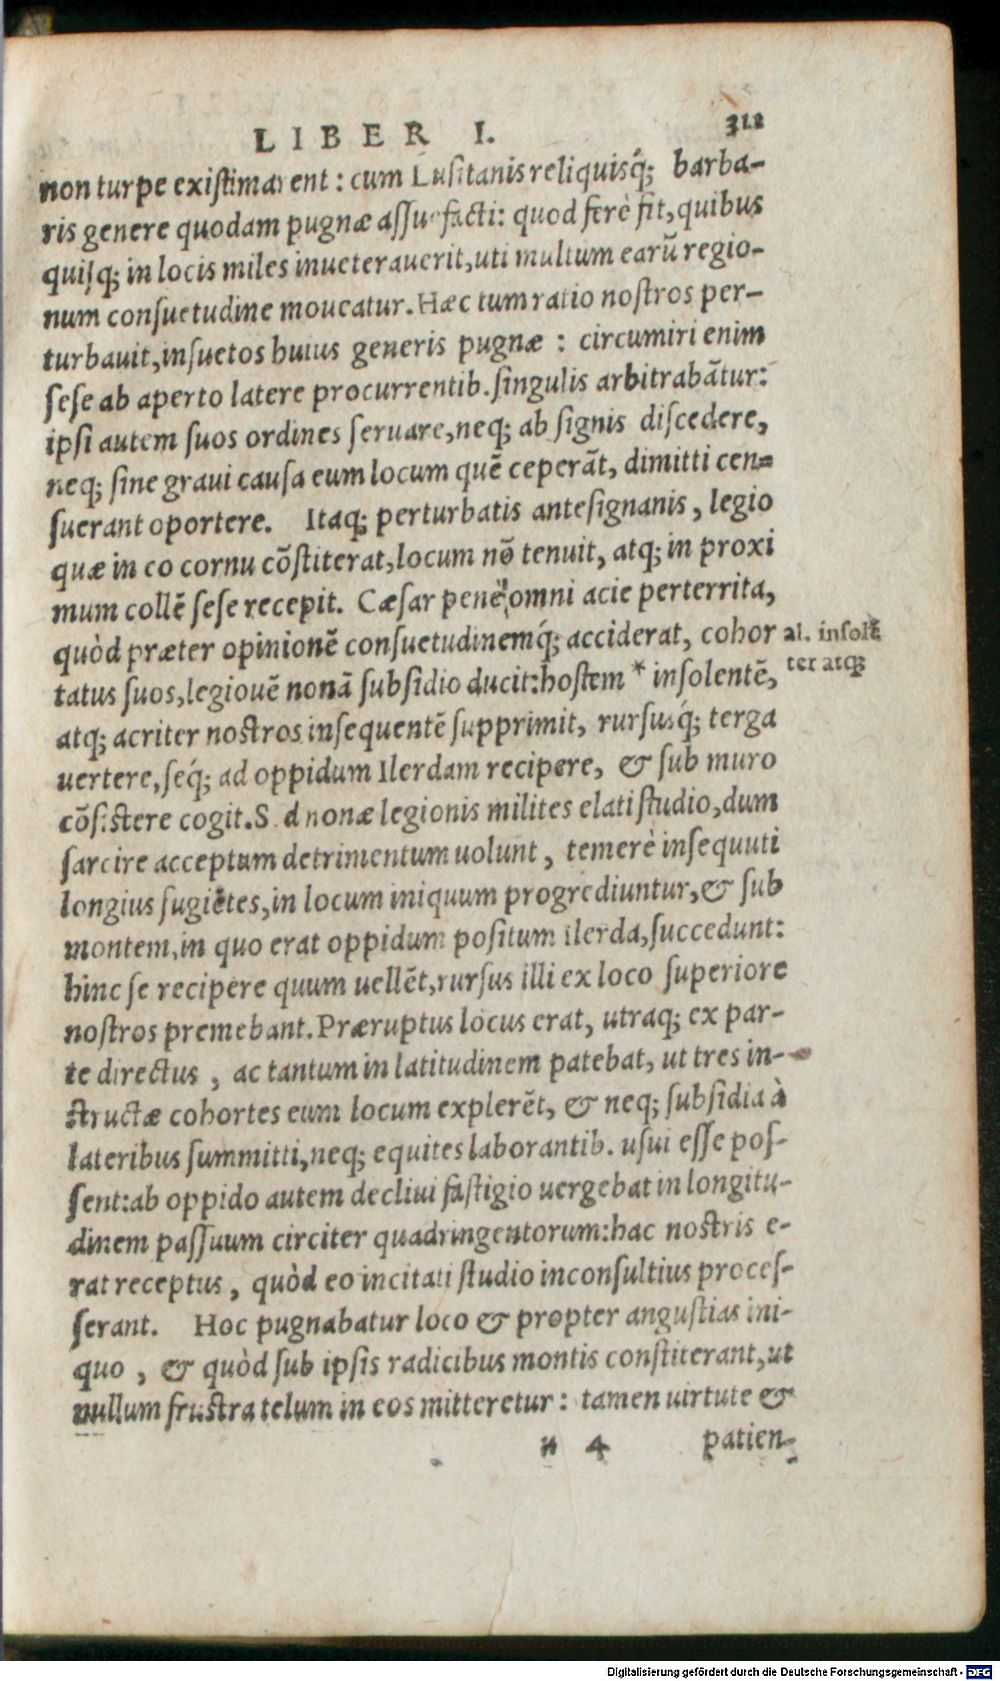 LIBER I. 312
non turpe existimarent: cum Lusitanis reliquisq́; barba-
ris genere quodam pugnæ assuefacti: quod ferè fit, quibus
quisq; in locis miles inueterauerit, uti multum earũ regio-
num consuetudine moueatur. Hæc tum ratio nostros per-
turbauit, insuetos huius generis pugnæ : circumiri enim
sese ab aperto latere procurrentib. singulis arbitrabãtur:
ipsi autem suos ordines seruare, neq; ab signis discedere,
neq; sine graui causa eum locum quẽ ceperãt, dimitti cen=
suerant oportere. Itaq; perturbatis antesignanis, legio
quæ in eo cornu cõstiterat, locum nõ tenuit, atq; in proxi
mum collẽ sese recepit. Cæsar penè omni acie perterrita,
quòd præter opinionẽ consuetudinemq́; acciderat, cohor
tatus suos, legiouẽ nonã subsidio ducit: hostem * insolentẽ,
al. insolẽ
ter atq;
atq; acriter nostros insequentẽ supprimit, rursusq́; terga
uertere, seq́; ad oppidum Ilerdam recipere, & sub muro
cõsistere cogit. S d nonæ legionis milites elati studio, dum
sarcire acceptum detrimentum uolunt, temerè insequuti
longius fugiẽtes, in locum iniquum progrediuntur, & sub
montem, in quo erat oppidum positum Ilerda, succedunt:
hinc se recipere quum uellẽt, rursus illi ex loco superiore
nostros premebant. Præruptus locus erat, utraq; ex par-
te directus, ac tantum in latitudinem patebat, ut tres in-
structæ cohortes eum locum explerẽt, & neq; subsidia à
lateribus summitti, neq; equites laborantib. usui esse pos-
sent: ab oppido autem decliui fastigio uergebat in longitu-
dinem passuum circiter quadringentorum: hac nostris e-
rat receptus, quòd eo incitati studio inconsultius proces-
serant. Hoc pugnabatur loco & propter angustias ini-
quo, & quòd sub ipsis radicibus montis constiterant, ut
nullum frustra telum in eos mitteretur: tamen uirtute &
n 4 patien-
Digitalisierung gefördert durch die Deutsche Forschungsgemeinschaft - DFG